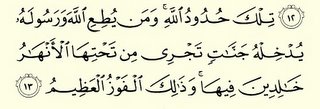 ١٢ تِلْكَ حُدُودُ ٱللَّهِ ۚ وَمَن يُطِعِ ٱللَّهَ وَرَسُولَهُۥ
يُدْخِلْهُ جَنَّٰتٍ تَجْرِى مِن تَحْتِهَا ٱلْأَنْهَٰرُ
خَٰلِدِينَ فِيهَا ۚ وَذَٰلِكَ ٱلْفَوْزُ ٱلْعَظِيمُ ١٣